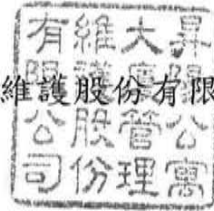 維護股份有限
昇公寓
大廈管理
維護股份
有限公司